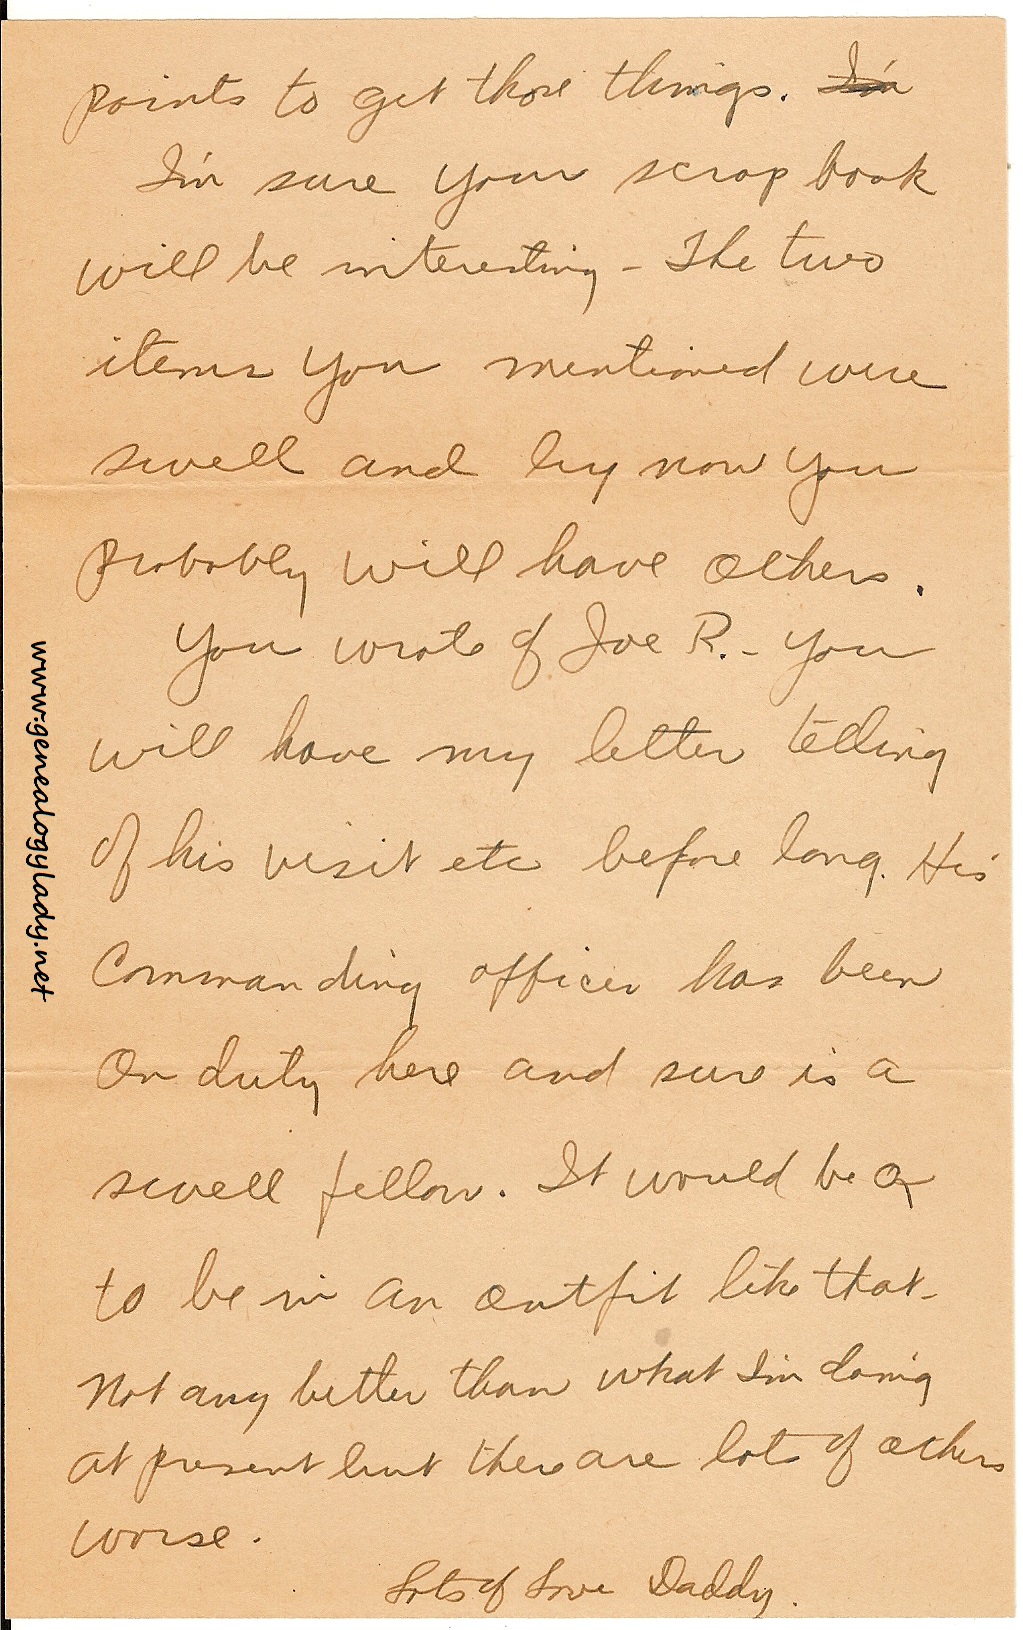 points to get those things. I'm
I'm sure your scrap book
will be interesting - The two
items you mentioned were
swell and by now you
probably will have others.
You wrote of Joe R. - you
will have my letter telling
of his visit etc before long. His
Commanding officer has been
on duty here and sure is a
swell fellow. It would be
to be in an outfit like that -
Not any better than what I'm doing
at present but there are lots of others
worse.
Lots of Love Daddy.
www.genealogylady.net